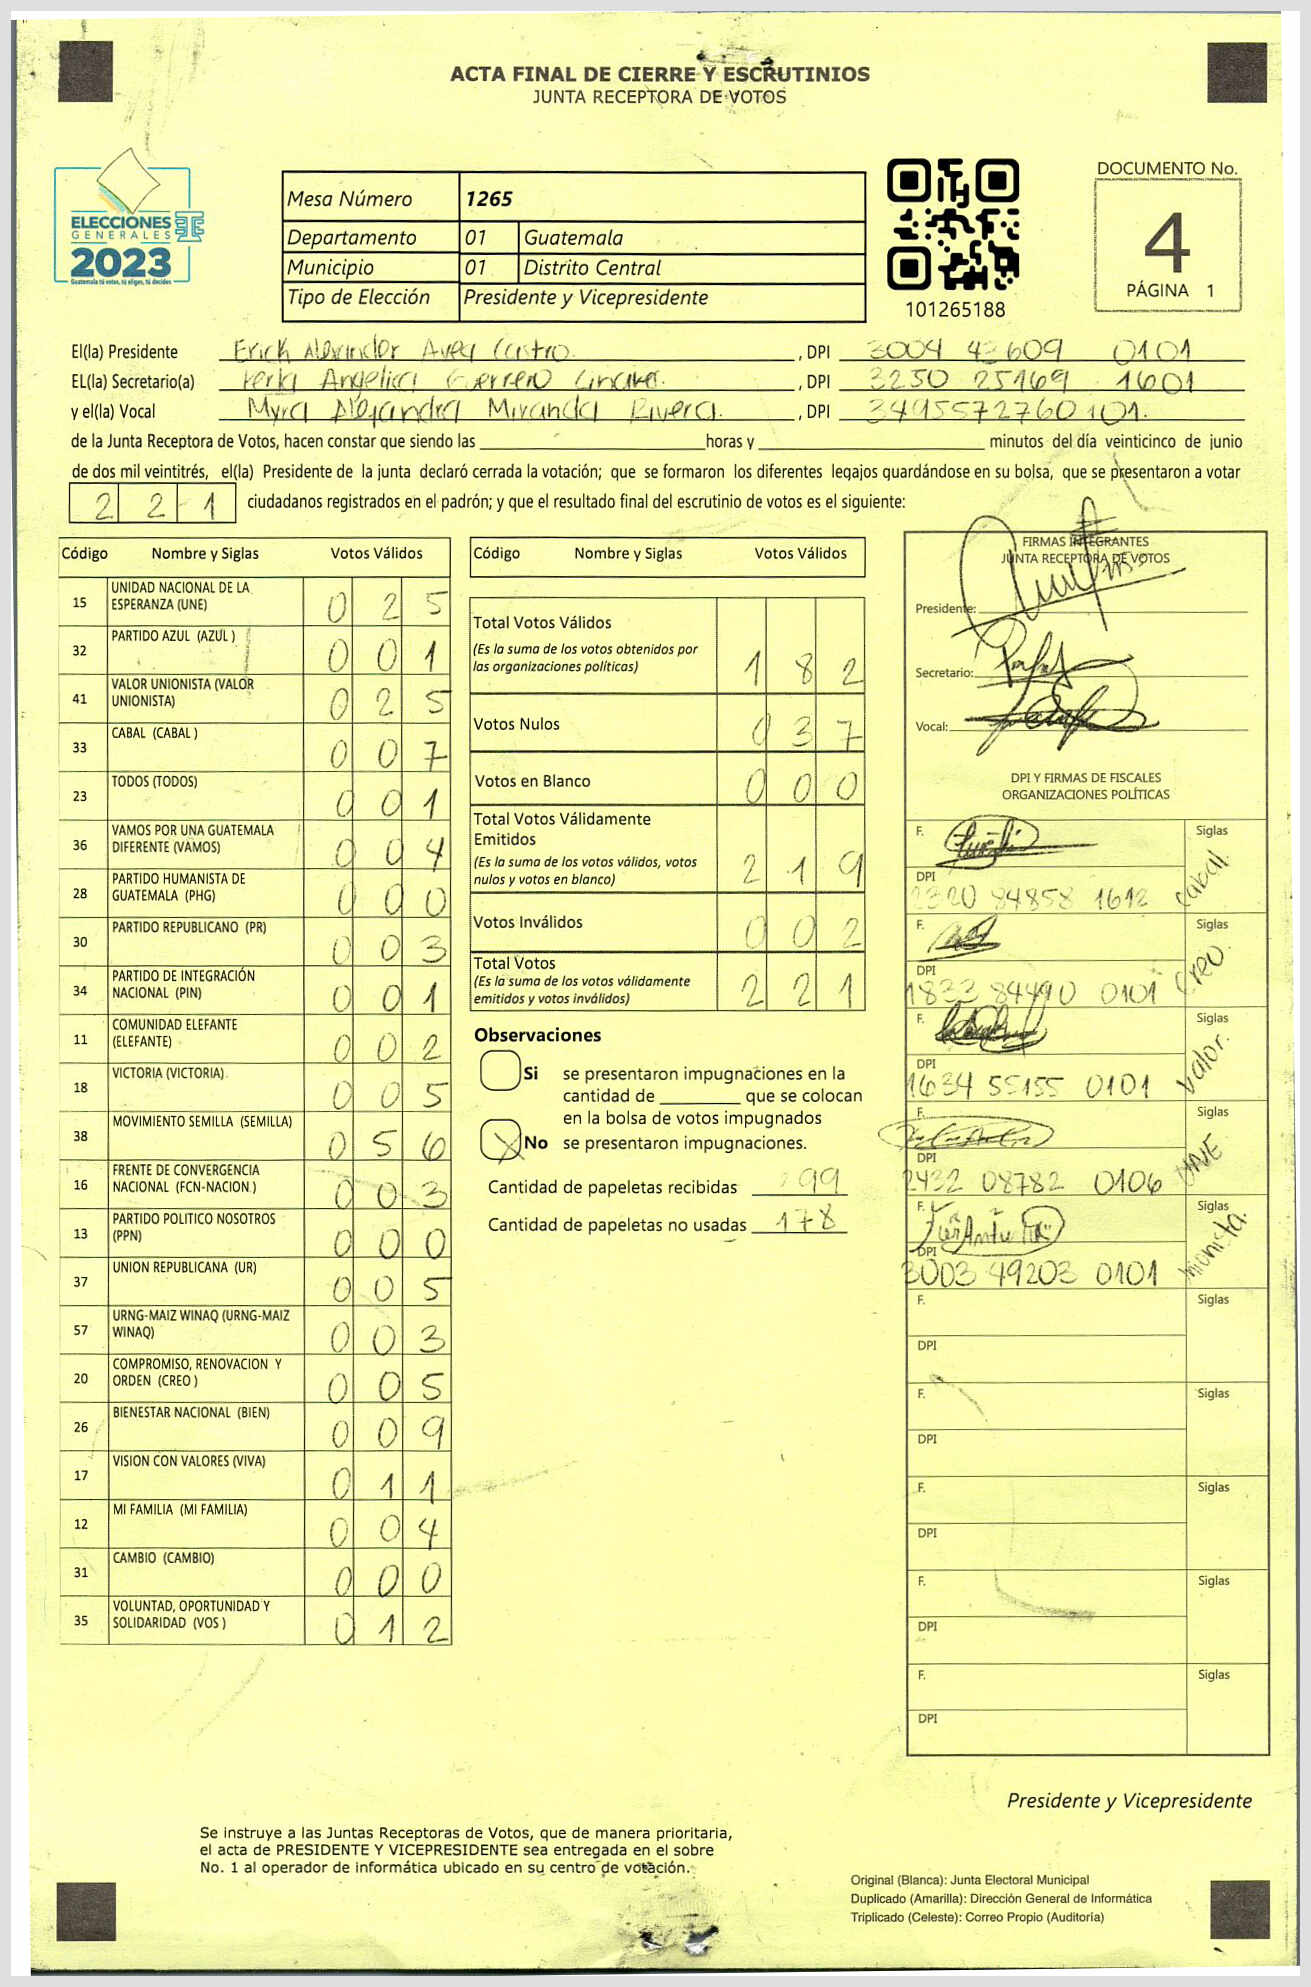 ACTA FINAL DE CIERRE Y ESCRUTINIOS
JUNTA RECEPTORA DE VOTOS
ELECCIONES
GENERALES
2023
Guatemala tú votas, tú eliges, tú decides
Mesa Número 1265
Departamento 01 Guatemala
Municipio 01 Distrito Central
Tipo de Elección Presidente y Vicepresidente
101265188
DOCUMENTO No.
4
PÁGINA 1
El(la) Presidente Erick Alexander Avea Castro , DPI 3004 42609 0101
EL(la) Secretario(a) Angelica Guerrero , DPI 3250 25169 1601
y el(la) Vocal Myra Alejandra Miranda Rivera. , DPI 3495572760101.
de la Junta Receptora de Votos, hacen constar que siendo las horas y minutos del día veinticinco de junio
de dos mil veintitrés, el(la) Presidente de la junta declaró cerrada la votación; que se formaron los diferentes legajos guardándose en su bolsa, que se presentaron a votar
2 2 1 ciudadanos registrados en el padrón; y que el resultado final del escrutinio de votos es el siguiente:
Código Nombre y Siglas Votos Válidos
15 UNIDAD NACIONAL DE LA ESPERANZA (UNE) 0 2 5
32 PARTIDO AZUL (AZUL ) 0 0 1
41 VALOR UNIONISTA (VALOR UNIONISTA) 0 2 5
33 CABAL (CABAL ) 0 0 7
23 TODOS (TODOS) 0 0 1
36 VAMOS POR UNA GUATEMALA DIFERENTE (VAMOS) 0 0 4
28 PARTIDO HUMANISTA DE GUATEMALA (PHG) 0 0 0
30 PARTIDO REPUBLICANO (PR) 0 0 3
34 PARTIDO DE INTEGRACIÓN NACIONAL (PIN) 0 0 1
11 COMUNIDAD ELEFANTE (ELEFANTE) 0 0 2
18 VICTORIA (VICTORIA) 0 0 5
38 MOVIMIENTO SEMILLA (SEMILLA) 0 5 6
16 FRENTE DE CONVERGENCIA NACIONAL (FCN-NACION ) 0 0 3
13 PARTIDO POLITICO NOSOTROS (PPN) 0 0 0
37 UNION REPUBLICANA (UR) 0 0 5
57 URNG-MAIZ WINAQ (URNG-MAIZ WINAQ) 0 0 3
20 COMPROMISO, RENOVACION Y ORDEN (CREO ) 0 0 5
26 BIENESTAR NACIONAL (BIEN) 0 0 9
17 VISION CON VALORES (VIVA) 0 1 1
12 MI FAMILIA (MI FAMILIA) 0 0 4
31 CAMBIO (CAMBIO) 0 0 0
35 VOLUNTAD, OPORTUNIDAD Y SOLIDARIDAD (VOS ) 0 1 2
Código Nombre y Siglas Votos Válidos
Total Votos Válidos 1 8 2
(Es la suma de los votos obtenidos por
las organizaciones políticas)
Votos Nulos 0 3 7
Votos en Blanco 0 0 0
Total Votos Válidamente
Emitidos 2 1 9
(Es la suma de los votos válidos, votos
nulos y votos en blanco)
Votos Inválidos 0 0 2
Total Votos 2 2 1
(Es la suma de los votos válidamente
emitidos y votos inválidos)
Observaciones
Si se presentaron impugnaciones en la
cantidad de que se colocan
en la bolsa de votos impugnados
X No se presentaron impugnaciones.
Cantidad de papeletas recibidas 99
Cantidad de papeletas no usadas 178
FIRMAS INTEGRANTES
JUNTA RECEPTORA DE VOTOS
Presidente:
Secretario:
Vocal:
DPI Y FIRMAS DE FISCALES
ORGANIZACIONES POLÍTICAS
F. Siglas Cabal.
DPI 2320 84858 1612
F. Siglas Creo.
DPI 1833 84490 0101
F. Siglas Valor.
DPI 1634 55155 0101
F. Siglas UNE
DPI 2432 08782 0106
F. Siglas
DPI 3003 49203 0101
F. Siglas
DPI
F. Siglas
DPI
F. Siglas
DPI
F. Siglas
DPI
F. Siglas
DPI
Presidente y Vicepresidente
Se instruye a las Juntas Receptoras de Votos, que de manera prioritaria,
el acta de PRESIDENTE Y VICEPRESIDENTE sea entregada en el sobre
No. 1 al operador de informática ubicado en su centro de votación.
Original (Blanca): Junta Electoral Municipal
Duplicado (Amarilla): Dirección General de Informática
Triplicado (Celeste): Correo Propio (Auditoría)